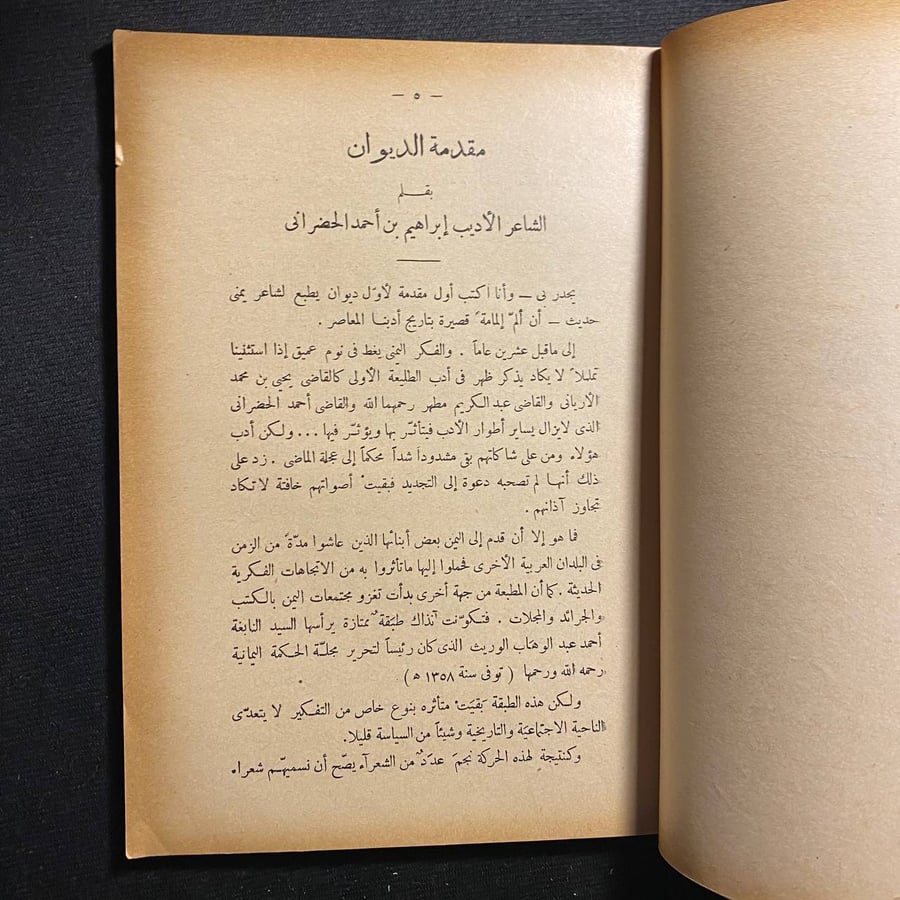 — ٥ —
مقدمة الديوان
بقلم
الشاعر الأديب إبراهيم بن أحمد الحضرانى
يجدر بى — وأنا اكتب أول مقدمة لأوّل ديوان يطبع لشاعر يمنى
حديث — أن ألمّ إلمامة ً قصيرة بتاريخ أدبنا المعاصر .
إلى ماقبل عشرين عاماً . والفكر اليمنى يغط فى نوم عميق إذا استثنينا
تمليلاً لا يكاد يذكر ظهر فى أدب الطليعة الأولى كالقاضى يحيى بن محمد
الأريانى والقاضى عبد الكريم مطهر رحمهما الله والقاضى أحمد الحضرانى
الذى لايزال يساير أطوار الأدب فيتأثّر بها ويؤثّر فيها ... ولكن أدب
هؤلاء ومن على شاكلتهم بقى مشدوداً شداً محكماً إلى عجلة الماضى . زد على
ذلك أنها لم تصحبه دعوة إلى التجديد فبقيتْ أصواتهم خافتة لا تكاد
تجاوز آذانهم .
فما هو إلا أن قدم إلى اليمن بعض أبنائها الذين عاشوا مدّة ً من الزمن
فى البلدان العربية الأخرى فحملوا إليها ماتأثروا به من الاتجاهات الفكرية
الحديثة . كما أن المطبعة من جهة أخرى بدأت تغزو مجتمعات اليمن بالكتب
والجرائد والمجلات . فتكوّنت آنذاك طبَقة ٌ ممتازة يرأسها السيد النابغة
أحمد عبد الوهاب الوريث الذى كان رئيساً لتحرير مجلّة الحكمة اليمانية
رحمه الله ورحمها ( توفى سنة ١٣٥٨ ه )
ولكن هذه الطبقة بَقيَتْ متأثره بنوع خاص من التفكير لا يتعدّى
الناحية الاجتماعيّة والتاريخية وشيئاً من السياسة قليلا.
وكنتيجة ٍ لهذه الحركة نجمَ عدَدٌ من الشعرآء يصّح أن نسميهّم شعراء